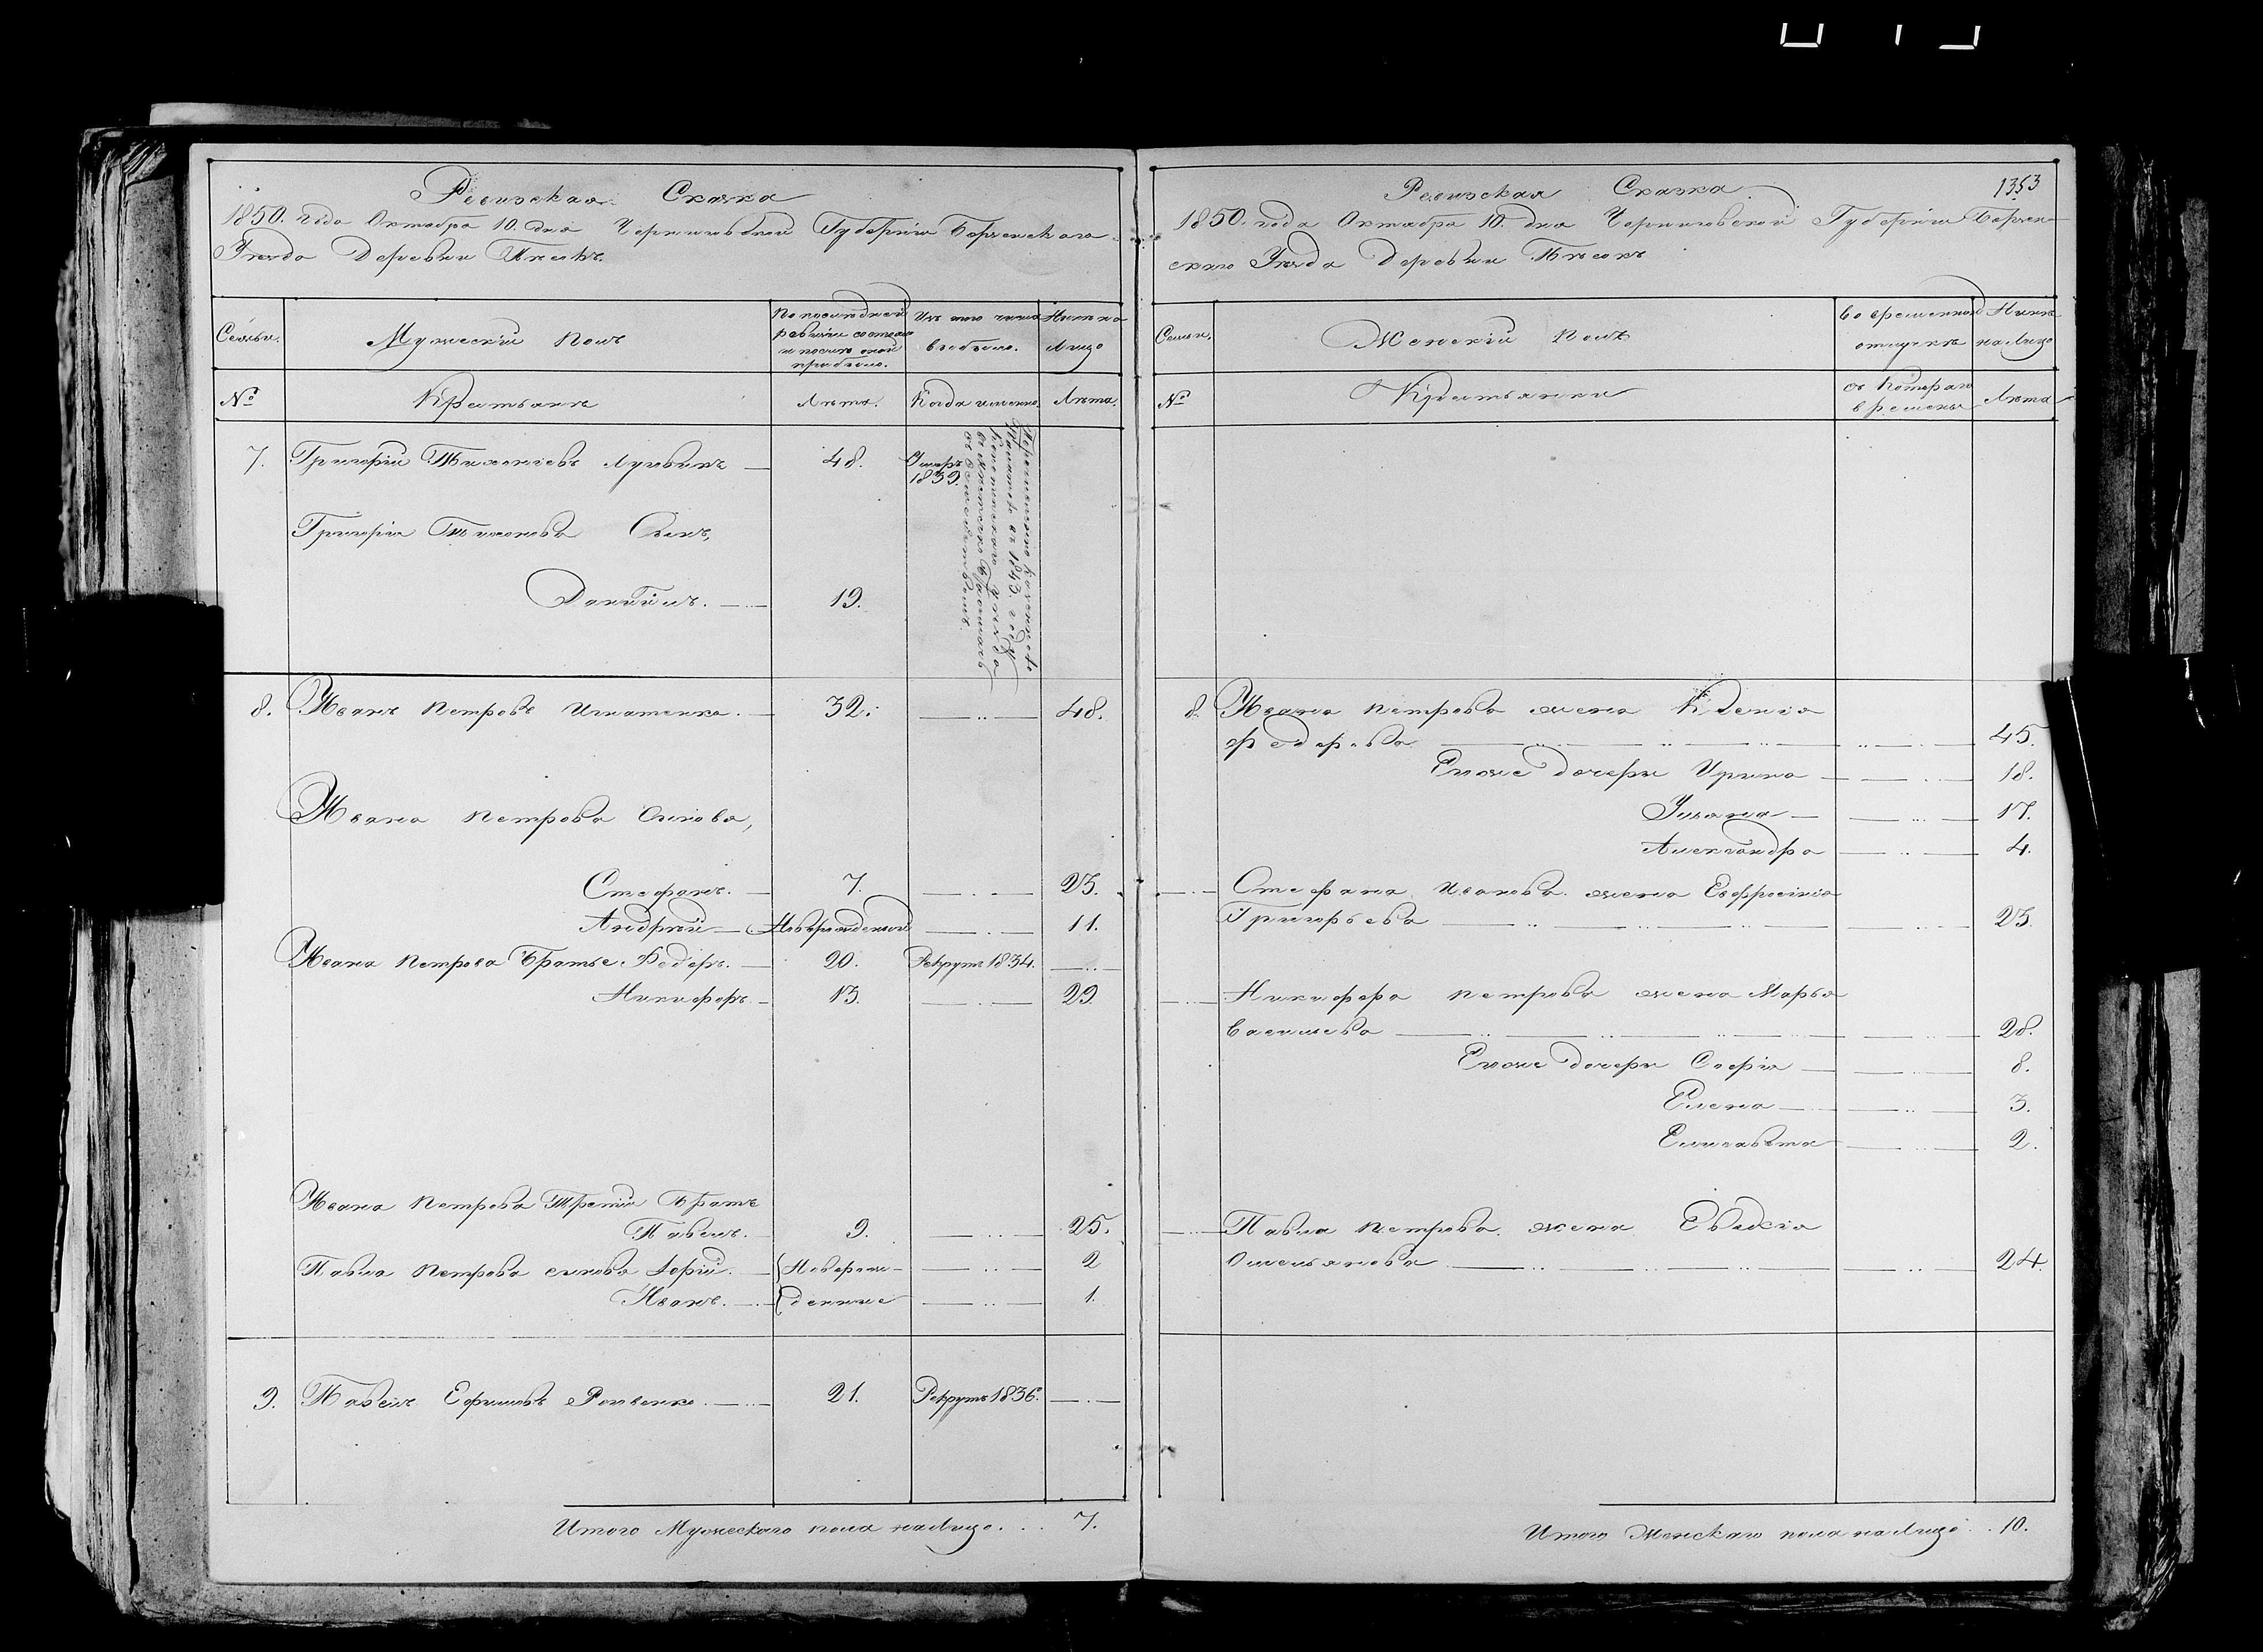 Ревизская Сказка
1850. года Октября 10. дня Черниговской Губерніи Борзенскаго
Уезда Деревни Песокъ.
Семьи.
Мужескій полъ
По последней
ревизіи состояло
и после оной
прибыло.
Изъ того числа
выбыло.
Ныне на
лицо
№
Крестьяне
Лета.
Когда именно.
Лета.
7. Григорій Тихоновъ 48. Умеръ
1839.
Григорія Тихонова Сынъ,
Даніилъ. 19.
8. Иванъ Петровъ Игнатенко. 32. 48.
Ивана Петрова Сыновья,
Стефанъ. 7. 23.
Андрей Новорожденный 11.
Ивана Петрова Братья Федоръ. 20. Рекрутъ 1834.
Никифоръ 13. 29.
Ивана Петрова Третій Братъ
Павелъ. 9. 25.
Павла Петрова сыновья Новорож- 2
Иванъ. денные 1.
9. Павелъ Ефимовъ 21. Рекрутъ 1836.
Итого Мужескаго пола на лицо... 7.
Ревизская Сказка 1353
1850. года Октября 10. дня Черниговской Губерніи Борзен-
скаго Уезда Деревни Песокъ
Семьи.
Женскій полъ
Во временной
отлучке
Ныне
на лицо
№
Крестьянки
Съ котораго
времени
Лета
8. Ивана Петрова жена Ксенія
Федорова 45.
Еіоже дочери Ирина 18.
Уліана 17.
Александра 4.
Стефана Иванова жена Евфросинія
Григорьева 23.
Никифора Петрова жена Марья
Васильева 28.
Еіоже дочери Софія 8.
Елена 3.
Елисавета 2.
Павла Петрова жена Евдокія
Омельянова 24.
Итого Женскаго пола на лицо.. 10.